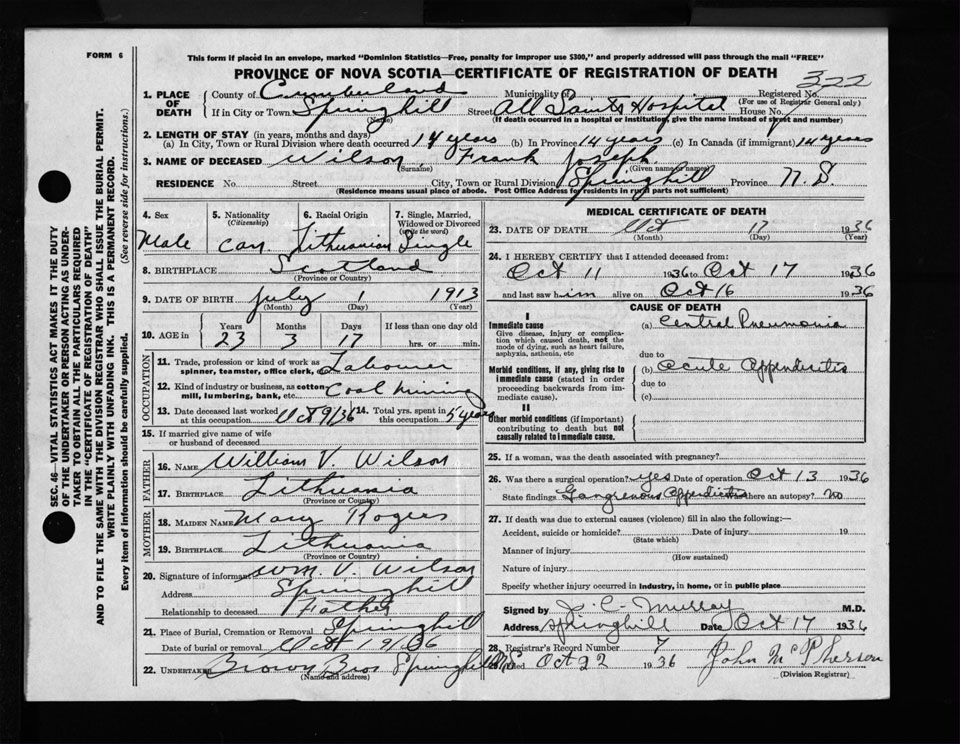 FORM 6
This form if placed in an envelope, marked "Dominion Statistics—Free, penalty for improper use $300," and properly addressed will pass through the mail "FREE"
PROVINCE OF NOVA SCOTIA—CERTIFICATE OF REGISTRATION OF DEATH
SEC. 46—VITAL STATISTICS ACT MAKES IT THE DUTY
OF THE UNDERTAKER OR PERSON ACTING AS UNDER-
TAKER TO OBTAIN ALL THE PARTICULARS REQUIRED
IN THE "CERTIFICATE OF REGISTRATION OF DEATH"
AND TO FILE THE SAME WITH THE DIVISION REGISTRAR WHO SHALL ISSUE THE BURIAL PERMIT.
WRITE PLAINLY WITH UNFADING INK. THIS IS A PERMANENT RECORD.
Every item of information should be carefully supplied.
(See reverse side for instructions.)
322
1. PLACE OF DEATH County of Cumberland Municipality of Registered No.
(For use of Registrar General only)
If in City or Town Springhill Street All Saints Hospital House No.
(Name) (If death occurred in a hospital or institution, give the name instead of street and number)
2. LENGTH OF STAY (in years, months and days)
(a) In City, Town or Rural Division where death occurred 14 years (b) In Province 14 years (c) In Canada (if immigrant) 14 years
3. NAME OF DECEASED Wilson, Frank Joseph
(Surname) (Given name or names)
RESIDENCE No. Street City, Town or Rural Division Springhill Province N.S.
(Residence means usual place of abode. Post Office Address for residents in rural parts not sufficient)
4. Sex Male
5. Nationality (Citizenship) Can.
6. Racial Origin Lithuanian
7. Single, Married, Widowed or Divorced (write the word) Single
8. BIRTHPLACE Scotland
(Province or Country)
9. DATE OF BIRTH July 1 1913
(Month) (Day) (Year)
10. AGE in Years 23 Months 3 Days 17 If less than one day old hrs. or min.
OCCUPATION
11. Trade, profession or kind of work as spinner, teamster, office clerk, etc. Labourer
12. Kind of industry or business, as cotton mill, lumbering, bank, etc. Coal mining
13. Date deceased last worked at this occupation Oct 9/36 14. Total yrs. spent in this occupation 5 years
15. If married give name of wife or husband of deceased
FATHER
16. NAME William V. Wilson
17. BIRTHPLACE Lithuania
(Province or Country)
MOTHER
18. MAIDEN NAME Mary Rogers
19. BIRTHPLACE Lithuania
(Province or Country)
20. Signature of informant Wm. V. Wilson
Address Springhill
Relationship to deceased Father
21. Place of Burial, Cremation or Removal Springhill
Date of burial or removal Oct 19/36
22. UNDERTAKER Brown Bros Springhill N.S.
(Name and address)
MEDICAL CERTIFICATE OF DEATH
23. DATE OF DEATH Oct 17 1936
(Month) (Day) (Year)
24. I HEREBY CERTIFY that I attended deceased from:
Oct 11 1936 to Oct 17 1936
and last saw him alive on Oct 16 1936
CAUSE OF DEATH
I
Immediate cause
Give disease, injury or complication which caused death, not the mode of dying, such as heart failure, asphyxia, asthenia, etc
(a) Central Pneumonia
due to
Morbid conditions, if any, giving rise to immediate cause (stated in order proceeding backwards from immediate cause).
(b) Acute Appendicitis
due to
(c)
II
Other morbid conditions (if important) contributing to death but not causally related to immediate cause.
25. If a woman, was the death associated with pregnancy?
26. Was there a surgical operation? yes Date of operation Oct 13 1936
State findings Gangrenous Appendicitis Was there an autopsy? no
27. If death was due to external causes (violence) fill in also the following:—
Accident, suicide or homicide? Date of injury 19
(State which)
Manner of injury
(How sustained)
Nature of injury
Specify whether injury occurred in industry, in home, or in public place
Signed by J. C. Murray M.D.
Address Springhill Date Oct 17 1936
28. Registrar's Record Number 7
29. Filed Oct 22 1936 John McPherson
(Division Registrar)